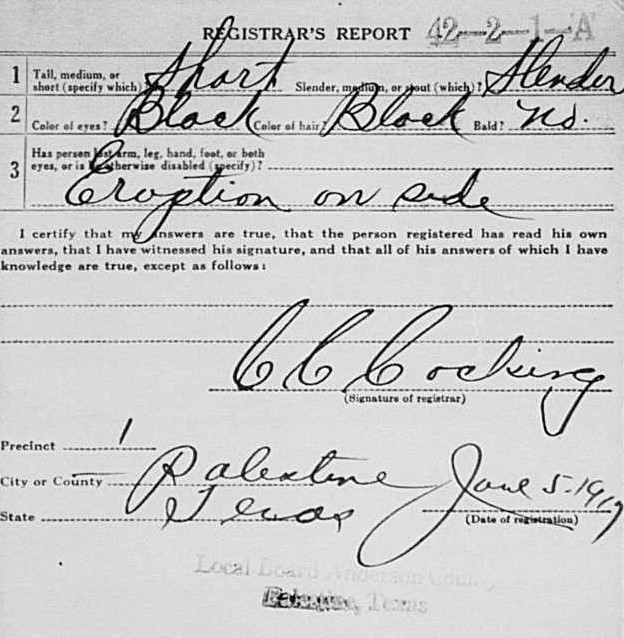 REGISTRAR'S REPORT 42-2-1-A
1 Tall, medium, or short (specify which)? Short Slender, medium, or stout (which)? Slender
2 Color of eyes? Black Color of hair Black Bald? No.
3 Has person lost arm, leg, hand, foot, or both
eyes, or is he otherwise disabled (specify)?
Eruption on side
I certify that my answers are true, that the person registered has read his own
answers, that I have witnessed his signature, and that all of his answers of which I have
knowledge are true, except as follows:
C C Cocking
(Signature of registrar)
Precinct 1
City or County Palestine June 5-1917
State Texas (Date of registration)
Local Board Anderson County
Palestine, Texas